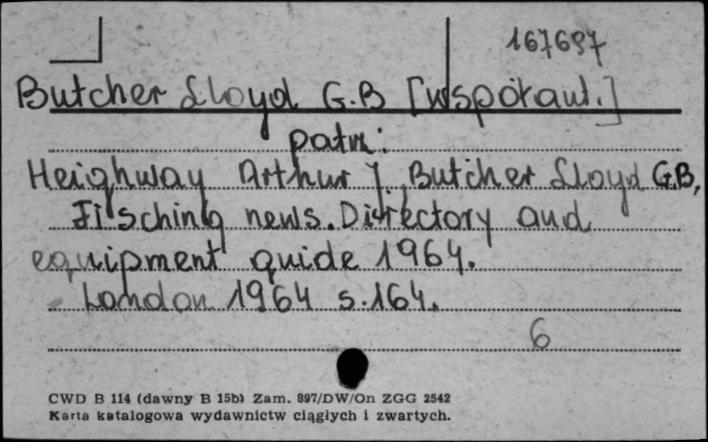 167697
Butcher Lloyd G.B [współaut.]
patrz:
Heighway Arthur J., Butcher Lloyd G.B,
Fisching news. Directory and
equipment guide 1964.
London 1964 s.164.
6
CWD B 114 (dawny B 15b) Zam. 897/DW/On ZGG 2542
Karta katalogowa wydawnictw ciągłych i zwartych.